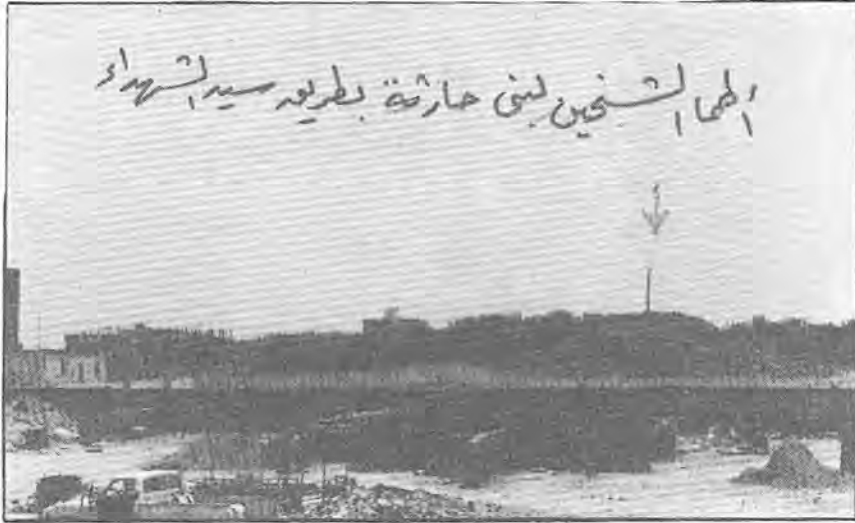 أطما الشيخين لبنى حارثة بطريق سيد الشهداء